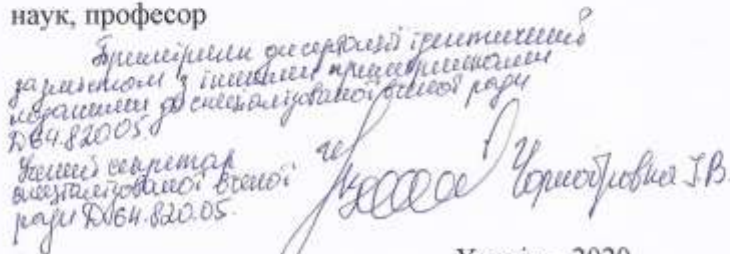 наук, професор
Примірник дисертації ідентичний
за змістом з іншими примірниками
поданими до спеціалізованої вченої ради
Д64.820.05
Учений секретар
спеціалізованої вченої
ради Д64.820.05.
І.В.
2020